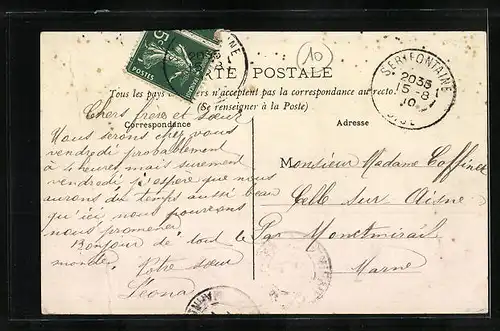 5c
POSTES
10
CARTE POSTALE
SERIFONTAINE
2035
15-8
10
OISE
Tous les pays étrangers n'acceptent pas la correspondance au recto.
(Se renseigner à la Poste)
Correspondance
Adresse
Chers frère et sœur
Nous serons chez vous
vendredi probablement
à 4 heures mais surement
vendredi j'espère que nous
aurons du temps aussi beau
qu'ici nous pourrons
nous promener
Bonjour de tout le
monde.
Votre sœur
Léona
Monsieur Madame Coffinet
Celle sur Aisne
Par Montmirail
Marne